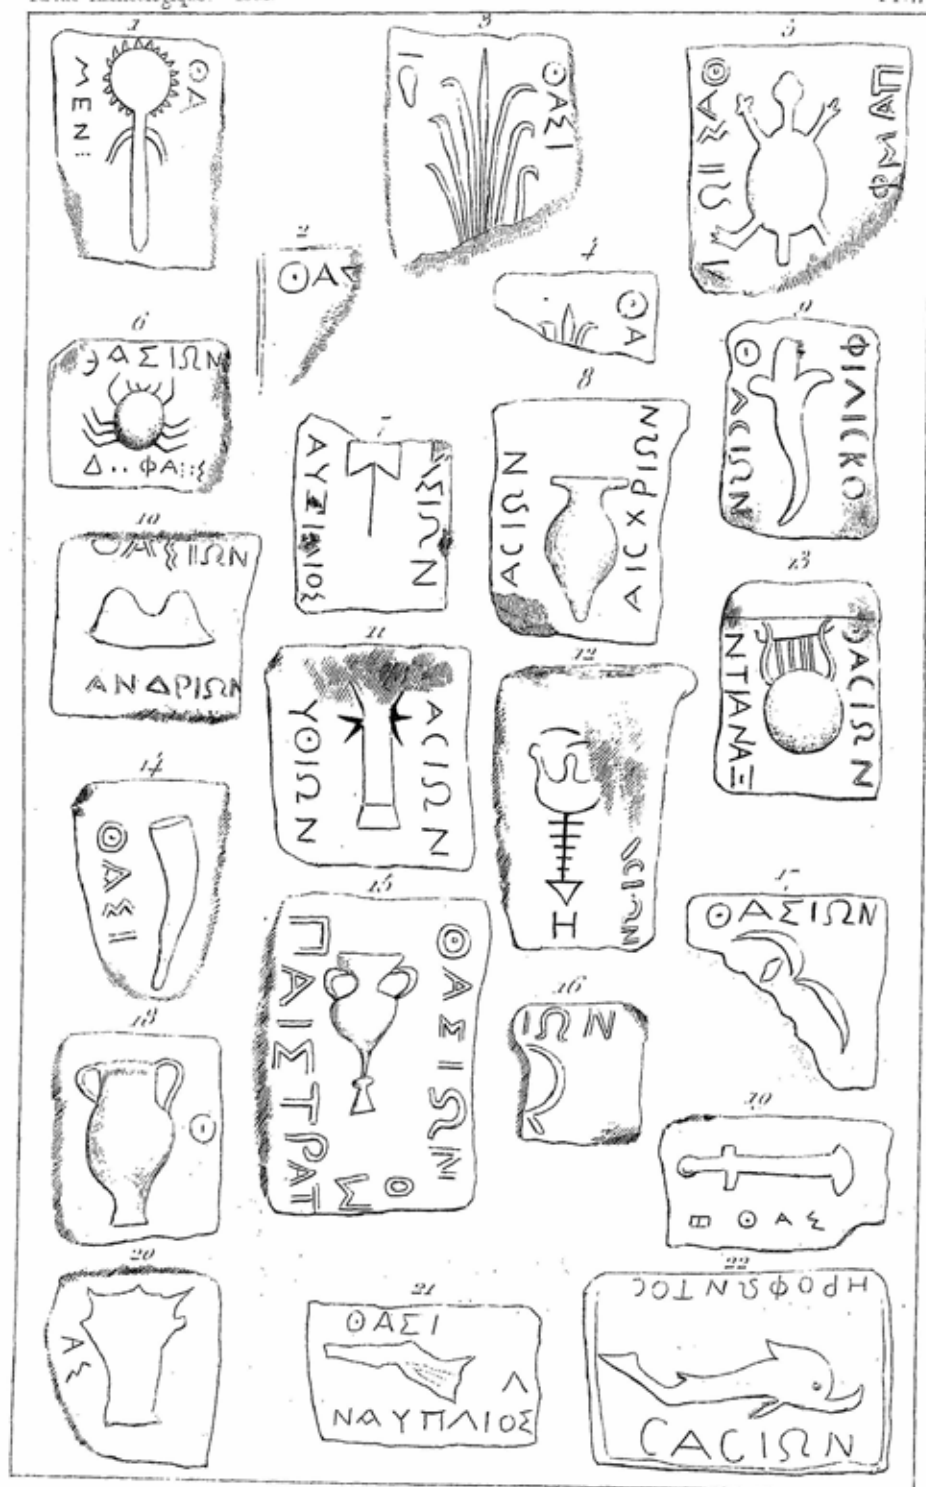 1
ΘΑ
ΜΕΝ
3
Ι
ΘΑΣΙ
5
ΘΑΣΙΩ
ΠΑΜΦ
2
ΘΑΣ
4
ΘΑ
6
ΘΑΣΙΩΝ
Δ..ΦΑ
7
ΑΥΞΙΛΙΟΣ
ΑΣΙΩΝ
8
ΑCΙΩΝ
ΑΙCΧΡΙΩΝ
9
ΘΑCΙΩΝ
ΦΙΛΙCΚΟ
10
ΘΑΣΙΩΝ
ΑΝΔΡΙΩΝ
11
ΥΘΙΩΝ
ΑCΙΩΝ
12
CΙΩΝ
Η
13
ΝΤΙΑΝΑΞ
ΘΑCΙΩΝ
14
ΘΑΣΙ
15
ΠΑΙΣΤΡΑΤ
ΘΑΣΙΩΝ
ΟΣ
16
ΙΩΝ
17
ΘΑΣΙΩΝ
18
Θ
19
Β ΘΑΣ
20
ΑΣ
21
ΘΑΣΙ
Λ
ΝΑΥΠΛΙΟΣ
22
ΗΡΟΦΩΝΤΟC
CΑCΙΩΝ